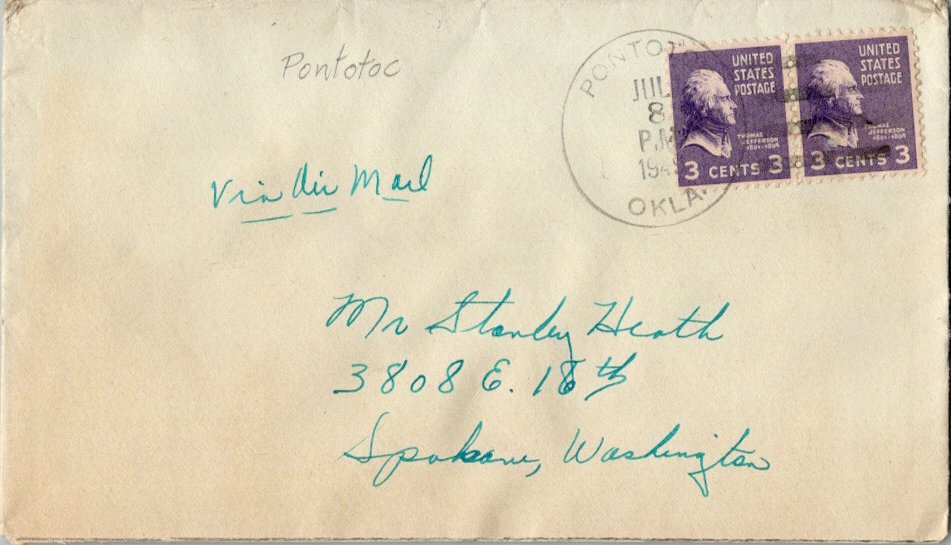 Pontotoc
PONTOTO
JUL
8
P.M
194
OKLA.
UNITED
STATES
POSTAGE
THOMAS
JEFFERSON
1801-1809
3 CENTS 3
UNITED
STATES
POSTAGE
THOMAS
JEFFERSON
1801-1809
3 CENTS 3
Via Air Mail
Mr Stanley Heath
3808 E. 18th
Spokane, Washington